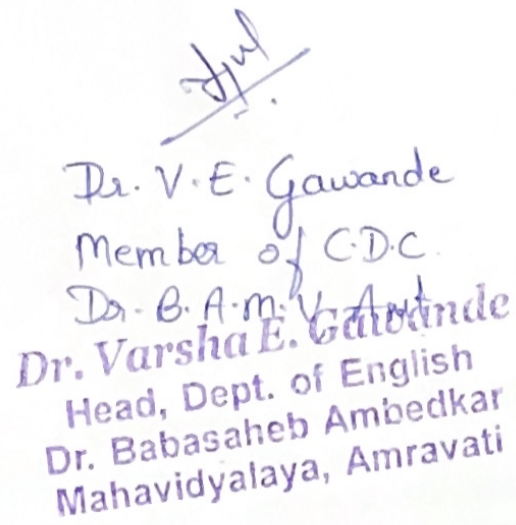 Dr. V. E. Gawande
Member of C.D.C.
Dr. B. A. M. V. Amt
Dr. Varsha E. Gawande
Head, Dept. of English
Dr. Babasaheb Ambedkar
Mahavidyalaya, Amravati